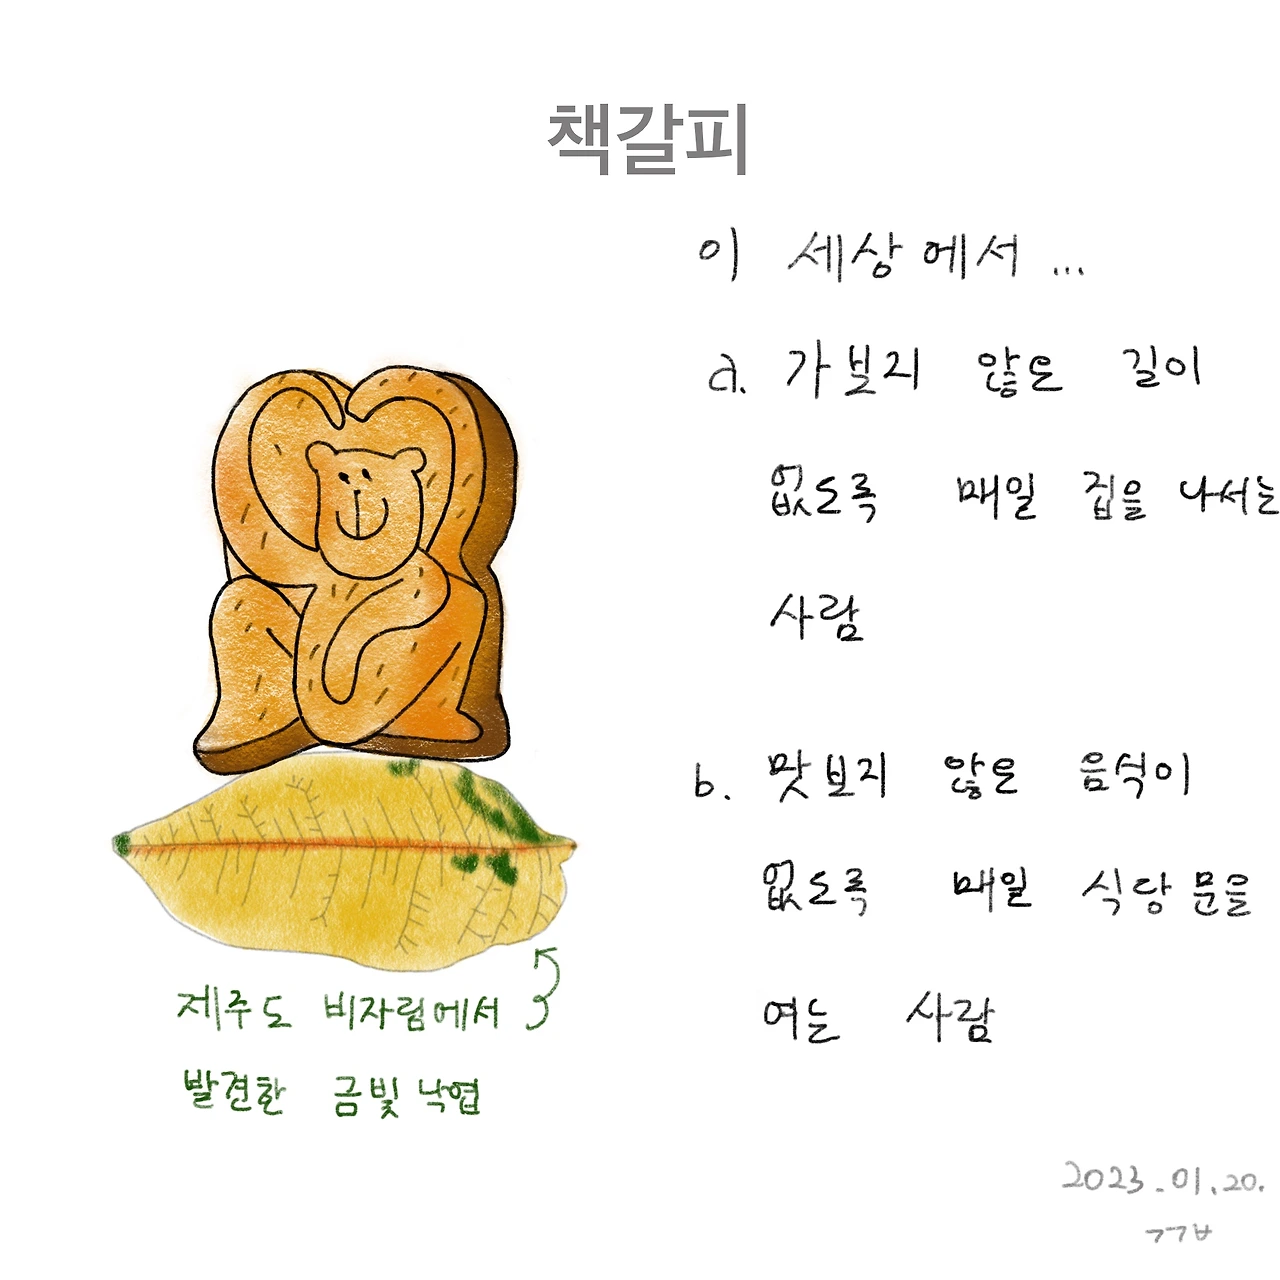 책갈피
이 세상에서 ...
a. 가보지 않은 길이
없도록 매일 집을 나서는
사람
b. 맛보지 않은 음식이
없도록 매일 식당 문을
여는 사람
제주도 비자림에서
발견한 금빛 낙엽
2023.01.20.
ㄱㄱㅂ